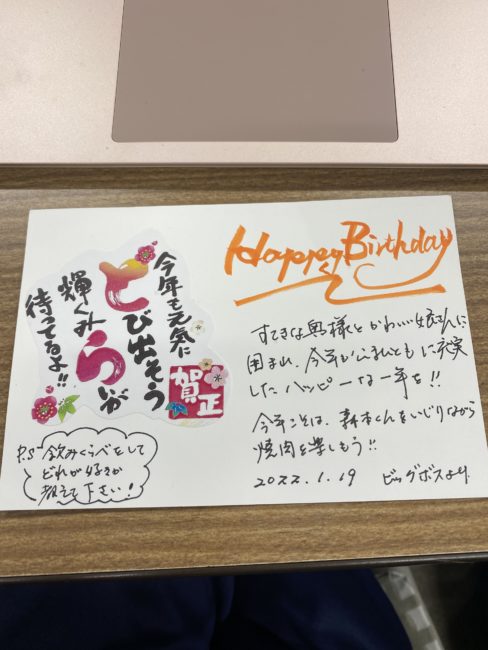 今年も元気に
とび出そう
輝くみらいが
待ってるよ!!
賀正
P.S 飲みくらべをして
どれが好きか
教えて下さい!
Happy Birthday
すてきな奥様とかわいい娘さんに
囲まれ、今年も公私ともに充実
したハッピーな一年を!!
今年こそは、くんをいじりながら
焼肉を楽しもう!!
2022.1.19 ビッグボスより